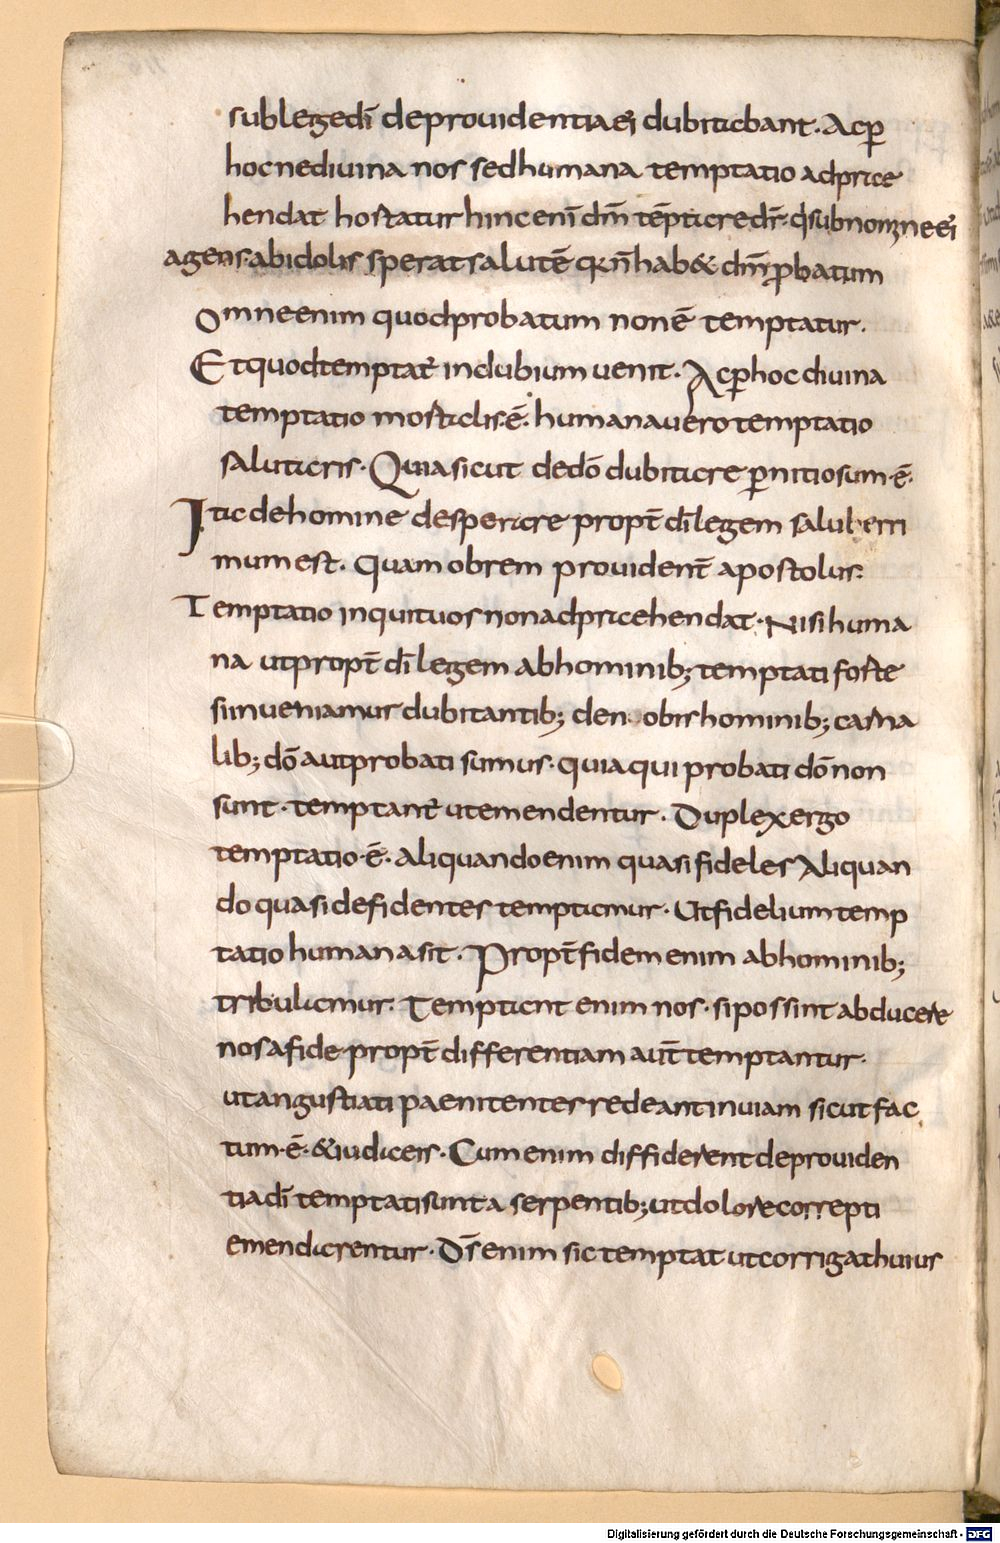 sub lege dī de prouidentia ei dubitabant. Ac ꝑ
hoc ne diuina nos sed humana temptatio adprae
hendat hostatur hinc enī dm̄ tēptare dr̄. qd sub nomine ei
agens ab idolis sperat salutē qn̄ hab& dm̄ ꝓbatum
Omne enim quod probatum non ē temptatur.
Et quod temptat̄ in dubium uenit. Ac ꝑ hoc diuina
temptatio mortalis. ē. humana uero temptatio
salutaris. Quia sicut de dō dubitare ꝑnitiosum. ē.
Ita de homine desperare propt̄ dī legem saluberri
mum est. Quam obrem prouident̄ apostolus.
Temptatio inquit uos non adpraehendat. Nisi huma
na ut propt̄ dī legem ab hominib; temptati forte
si inueniamur dubitantib; de nobis hominib; carna
lib; dō aut probati sumus. quia qui probati dō non
sunt. temptant̄ ut emendentur. Duplex ergo
temptatio. ē. Aliquando enim quasi fideles Aliquan
do quasi defidentes temptamur. Ut fidelium temp
tatio humana sit. Propt̄ fidem enim ab hominib;
tribulamur. Temptant enim nos. si possint abducere
nos a fide propt̄ differentiam aut̄ temptantur.
ut angustiati paenitentes redeant in uiam sicut fac
tum. ē. & iudaeis. Cum enim diffiderent de prouiden
tia dī temptati sunt a serpentib; ut dolore correpti
emendarentur. Ds̄ enim sic temptat ut corrigat huius
Digitalisierung gefördert durch die Deutsche Forschungsgemeinschaft - DFG